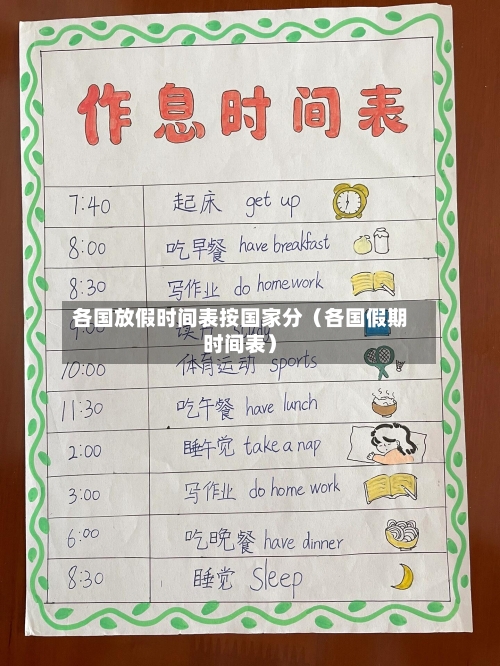 作息时间表
7:40 起床 get up
8:00 吃早餐 have breakfast
8:30 写作业 do homework
各国放假时间表按国家分（各国假期
时间表）
9:00
10:00 体育运动 sports
11:30 吃午餐 have lunch
2:00 睡午觉 take a nap
3:00 写作业 do home work
6:00 吃晚餐 have dinner
8:30 睡觉 Sleep